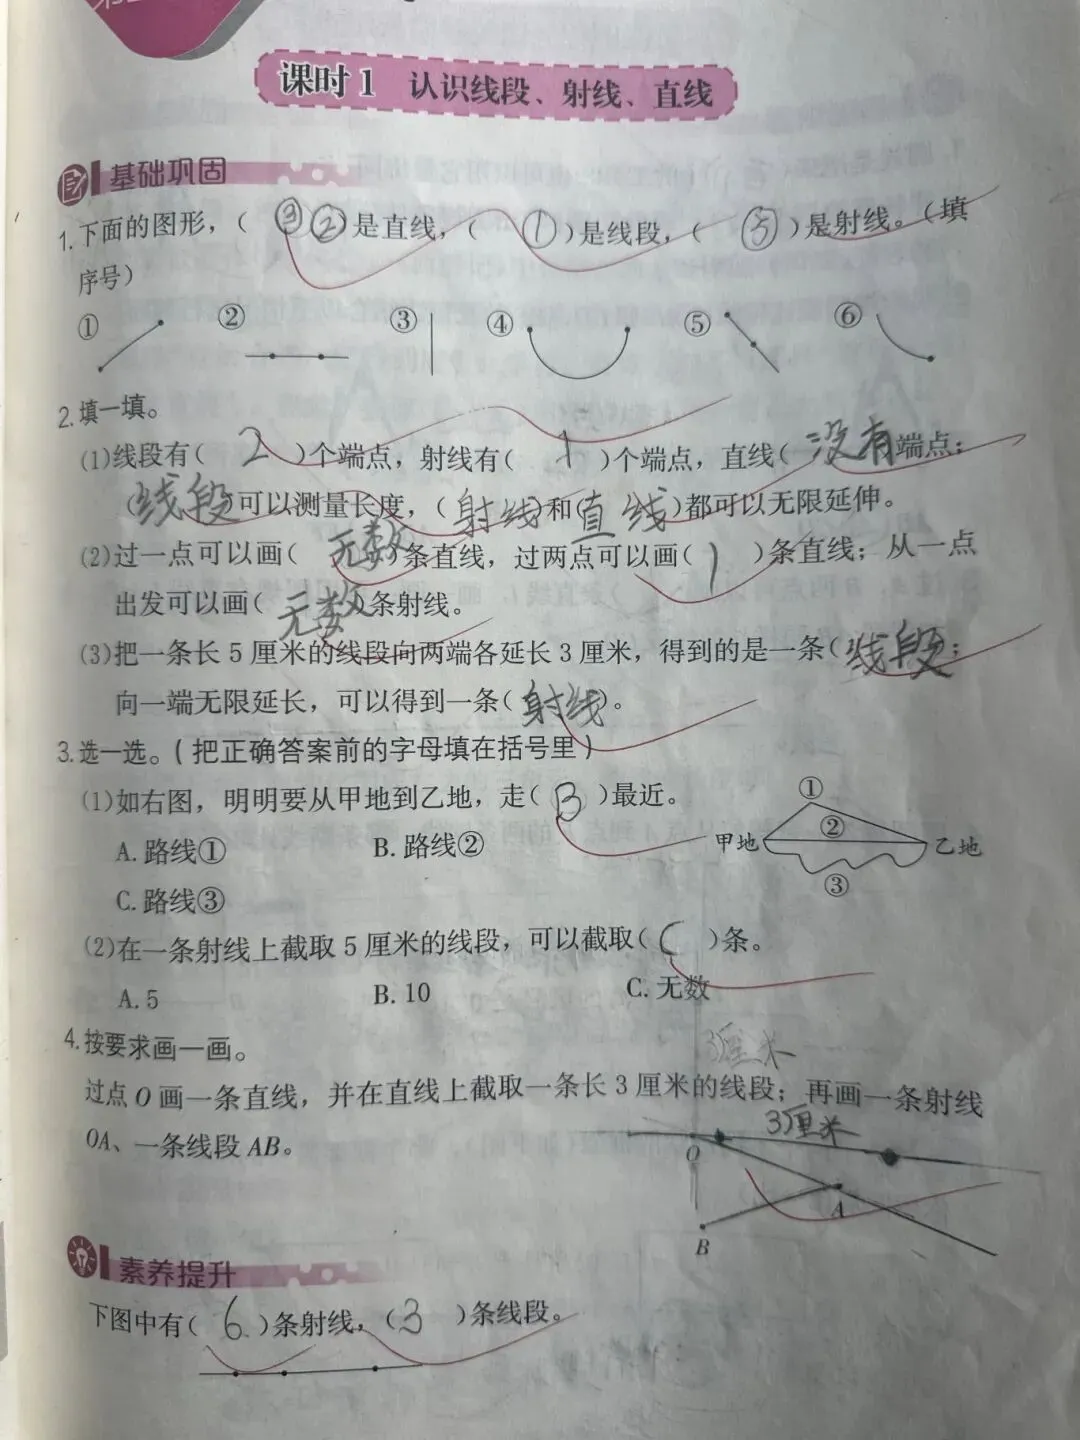 课时1 认识线段、射线、直线
基础巩固
1.下面的图形，（ ③② ）是直线，（ ① ）是线段，（ ⑤ ）是射线。（填
序号）
① ② ③ ④ ⑤ ⑥
2.填一填。
(1)线段有（ 2 ）个端点，射线有（ 1 ）个端点，直线（ 没有 端点；
（线段）可以测量长度，（射线）和（直线）都可以无限延伸。
(2)过一点可以画（ 无数 ）条直线，过两点可以画（ 1 ）条直线；从一点
出发可以画（ 无数 ）条射线。
(3)把一条长5厘米的线段向两端各延长3厘米，得到的是一条（线段；
向一端无限延长，可以得到一条（射线）。
3.选一选。（把正确答案前的字母填在括号里）
(1)如右图，明明要从甲地到乙地，走（ B ）最近。
A.路线① B.路线②
C.路线③
① ② ③ 甲地 乙地
(2)在一条射线上截取5厘米的线段，可以截取（ C ）条。
A.5 B.10 C.无数
4.按要求画一画。
3厘米
过点O画一条直线，并在直线上截取一条长3厘米的线段；再画一条射线
OA、一条线段AB。
3厘米
O
A
B
素养提升
下图中有（ 6 ）条射线，（ 3 ）条线段。